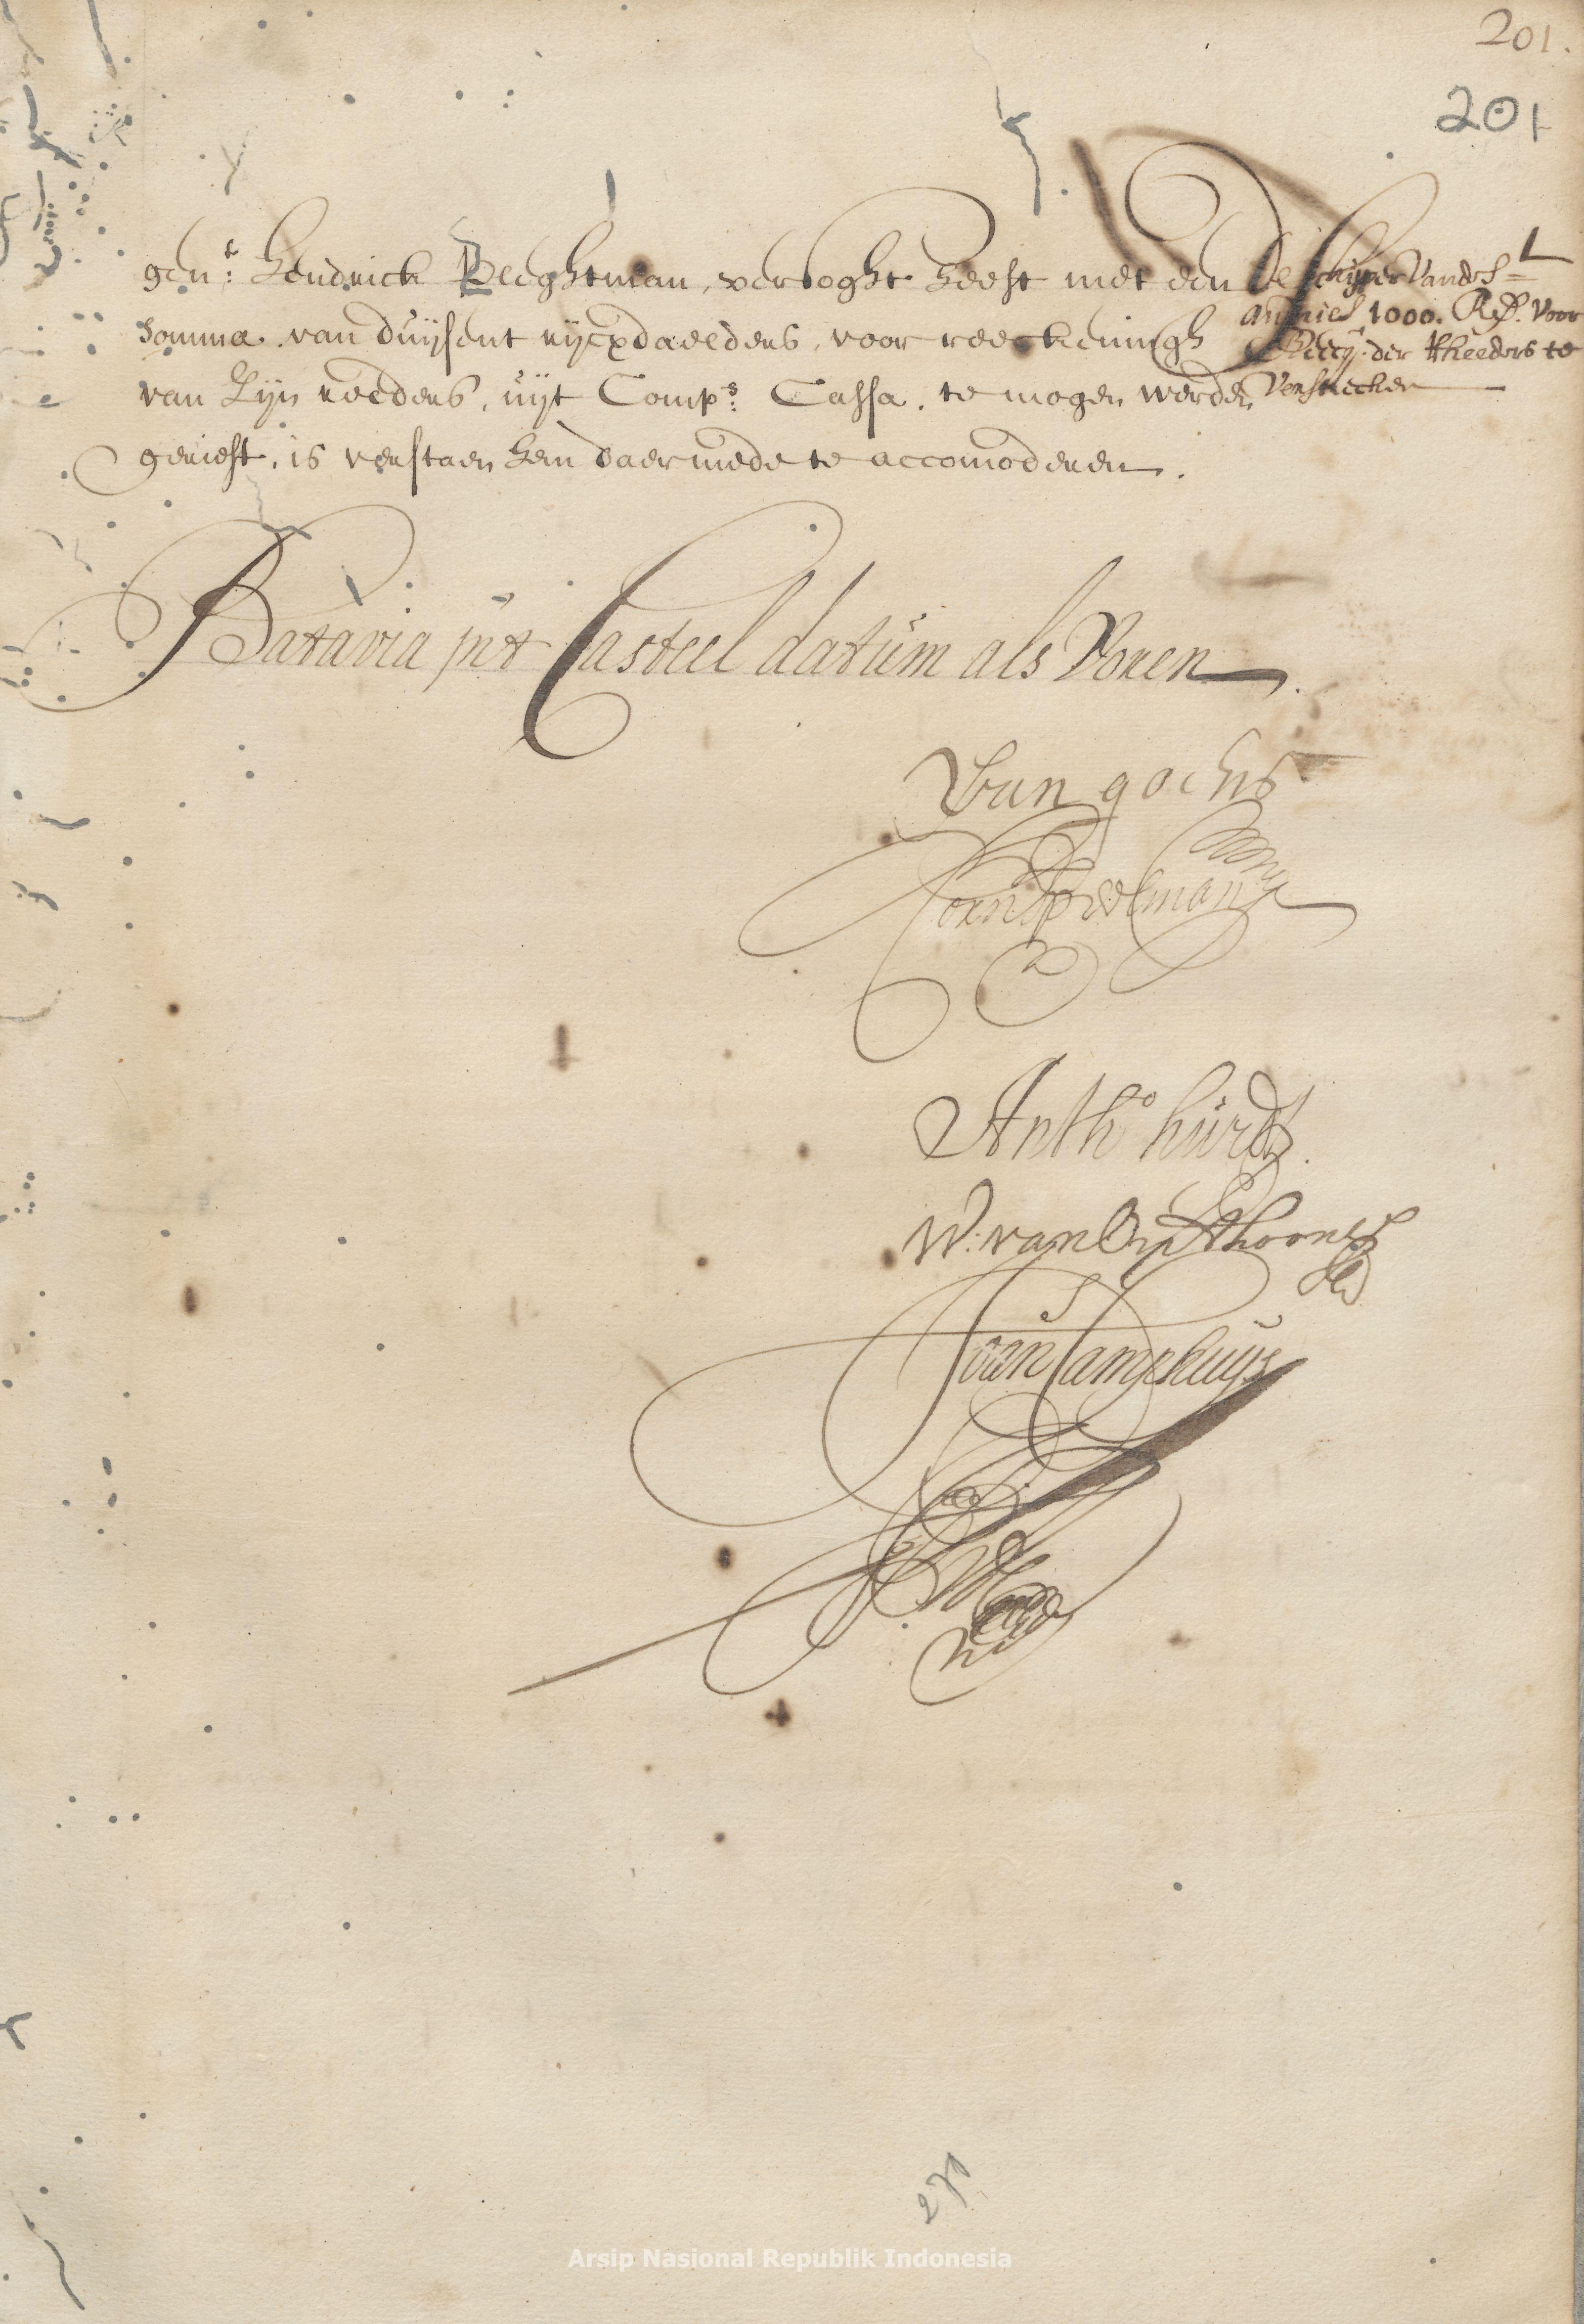 201.
201
gen:t Hendrick Reeghtman, versoght heeft met een
somma van duijsent rijcxdaelders, voor reeckeningh
van zijn reeders, uijt Comp:s Cassa, te mogen werden
gerieft, is verstaen hem daermede te accomoderen.
De schipper van des
1000. R:ds voor
der Rheeders te
verstrecken
Batavia int Casteel datum als Voren
Van goens
Corn Speelman
Antho hurdt
W: van Outhoorn
Joan Camphuijs
270
Arsip Nasional Republik Indonesia